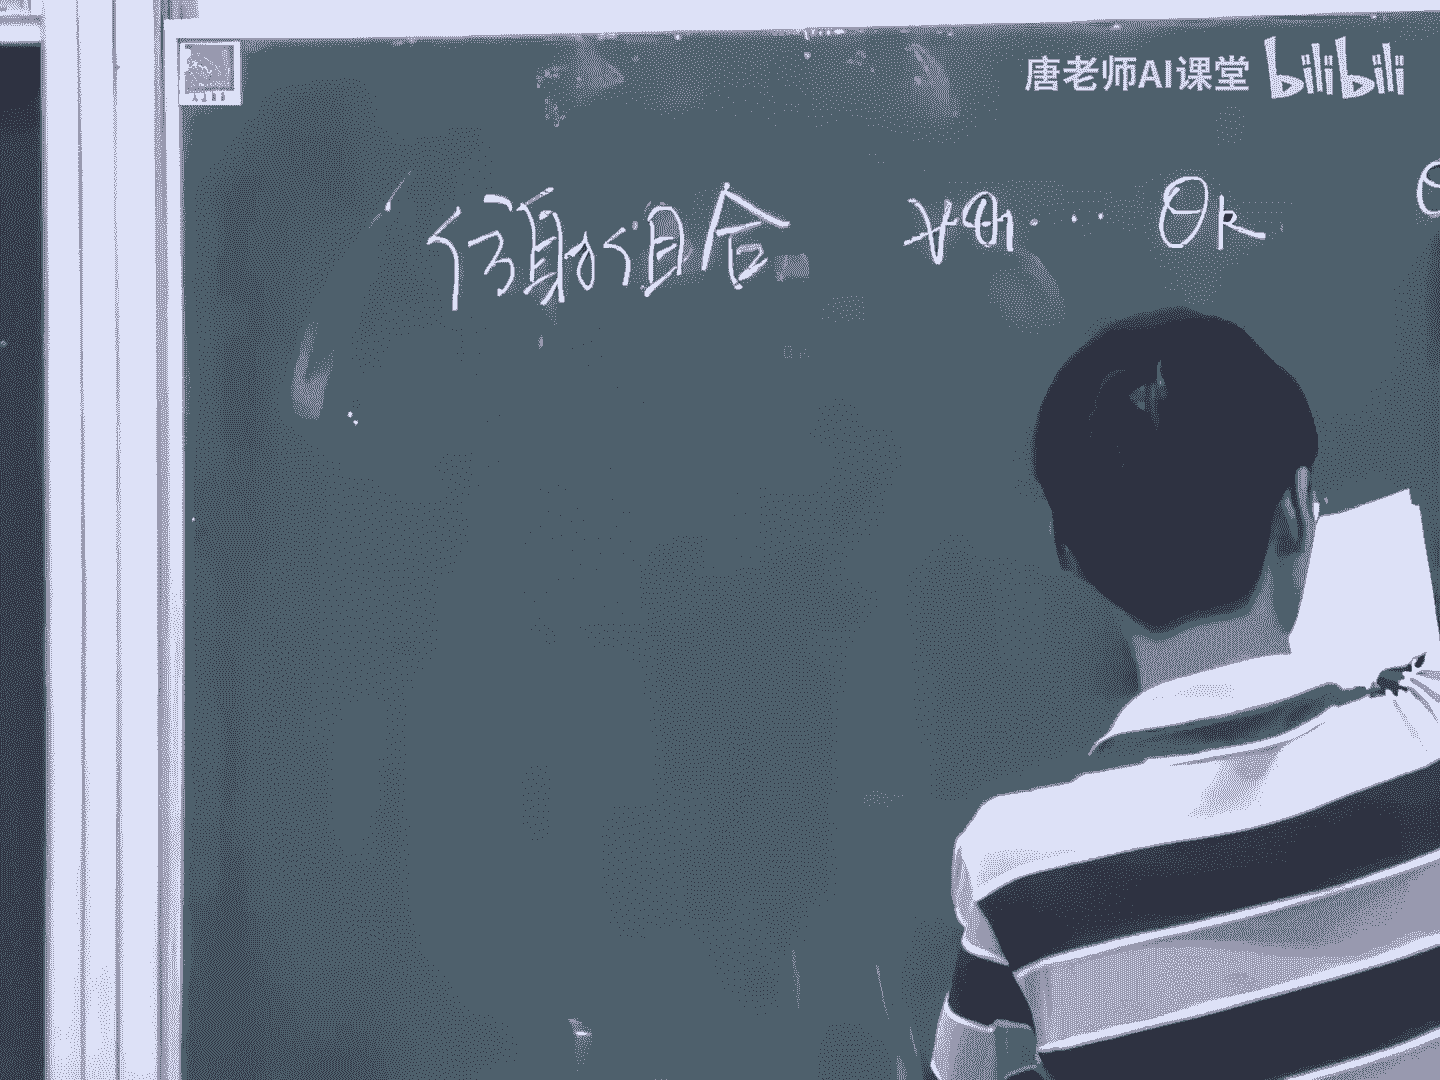 唐老师AI课堂 bilibili
仿射组合 ∀θ1 ... θk θ